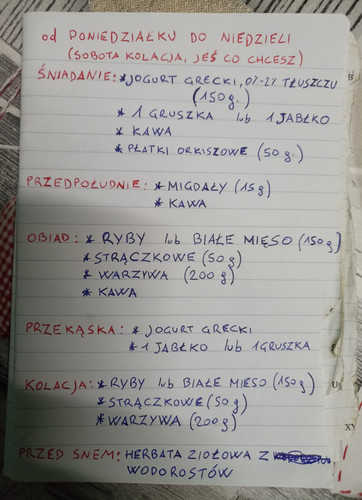 od PONIEDZIAŁKU DO NIEDZIELI
(SOBOTA KOLACJA, JEŚ CO CHCESZ)
ŚNIADANIE: * JOGURT GRECKI, 0%-2% TŁUSZCZU
(150 g.)
* 1 GRUSZKA lub 1 JABŁKO
* KAWA
* PŁATKI ORKISZOWE (50 g.)
PRZEDPOŁUDNIE: * MIGDAŁY (15 g)
* KAWA
OBIAD: * RYBY lub BIAŁE MIĘSO (150 g)
* STRĄCZKOWE (50 g)
* WARZYWA (200 g)
* KAWA
PRZEKĄSKA: * JOGURT GRECKI
* 1 JABŁKO lub 1 GRUSZKA
KOLACJA: * RYBY lub BIAŁE MIĘSO (150 g)
* STRĄCZKOWE (50 g)
* WARZYWA (200 g)
PRZED SNEM: HERBATA ZIOŁOWA Z
WODOROSTÓW